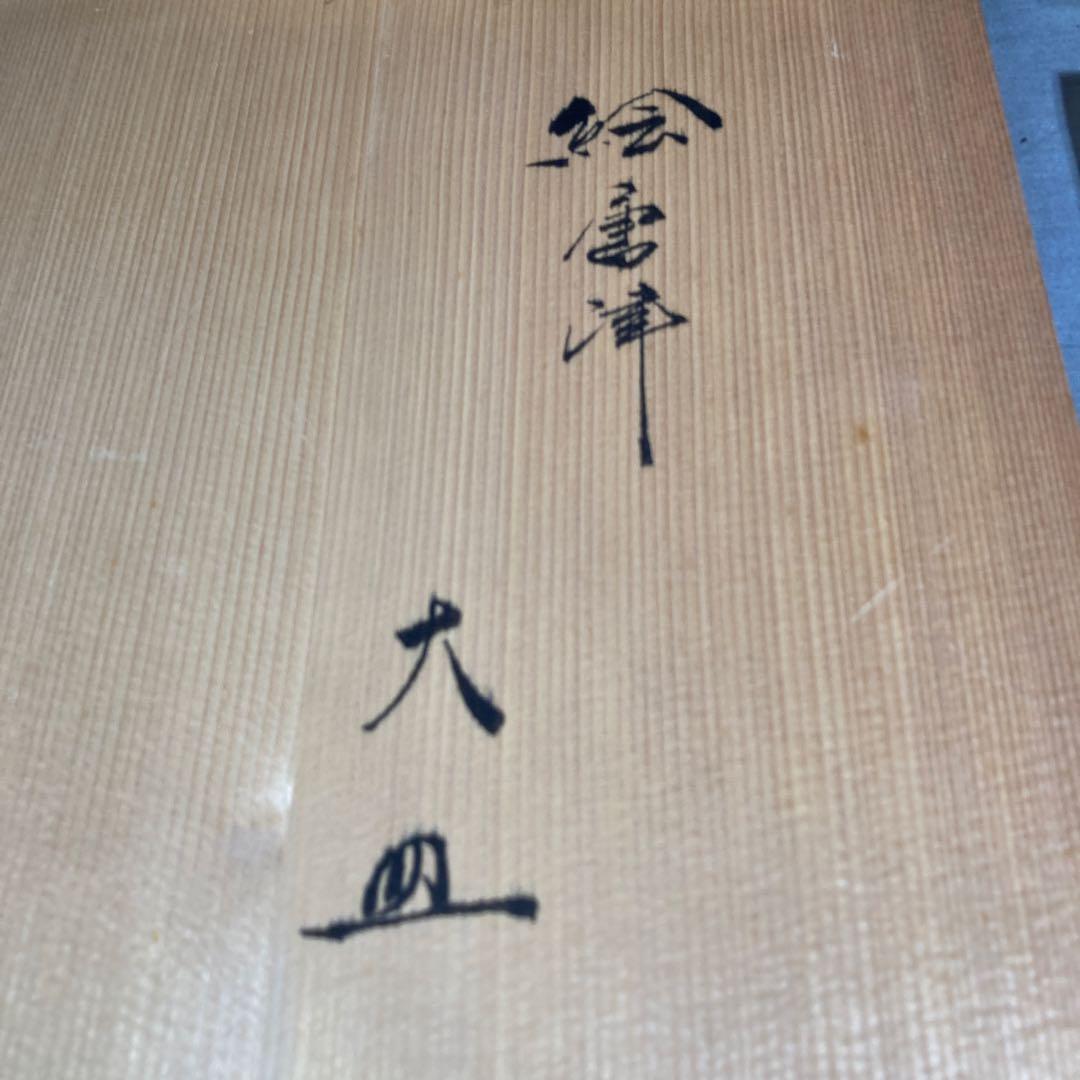 絵唐津
大皿